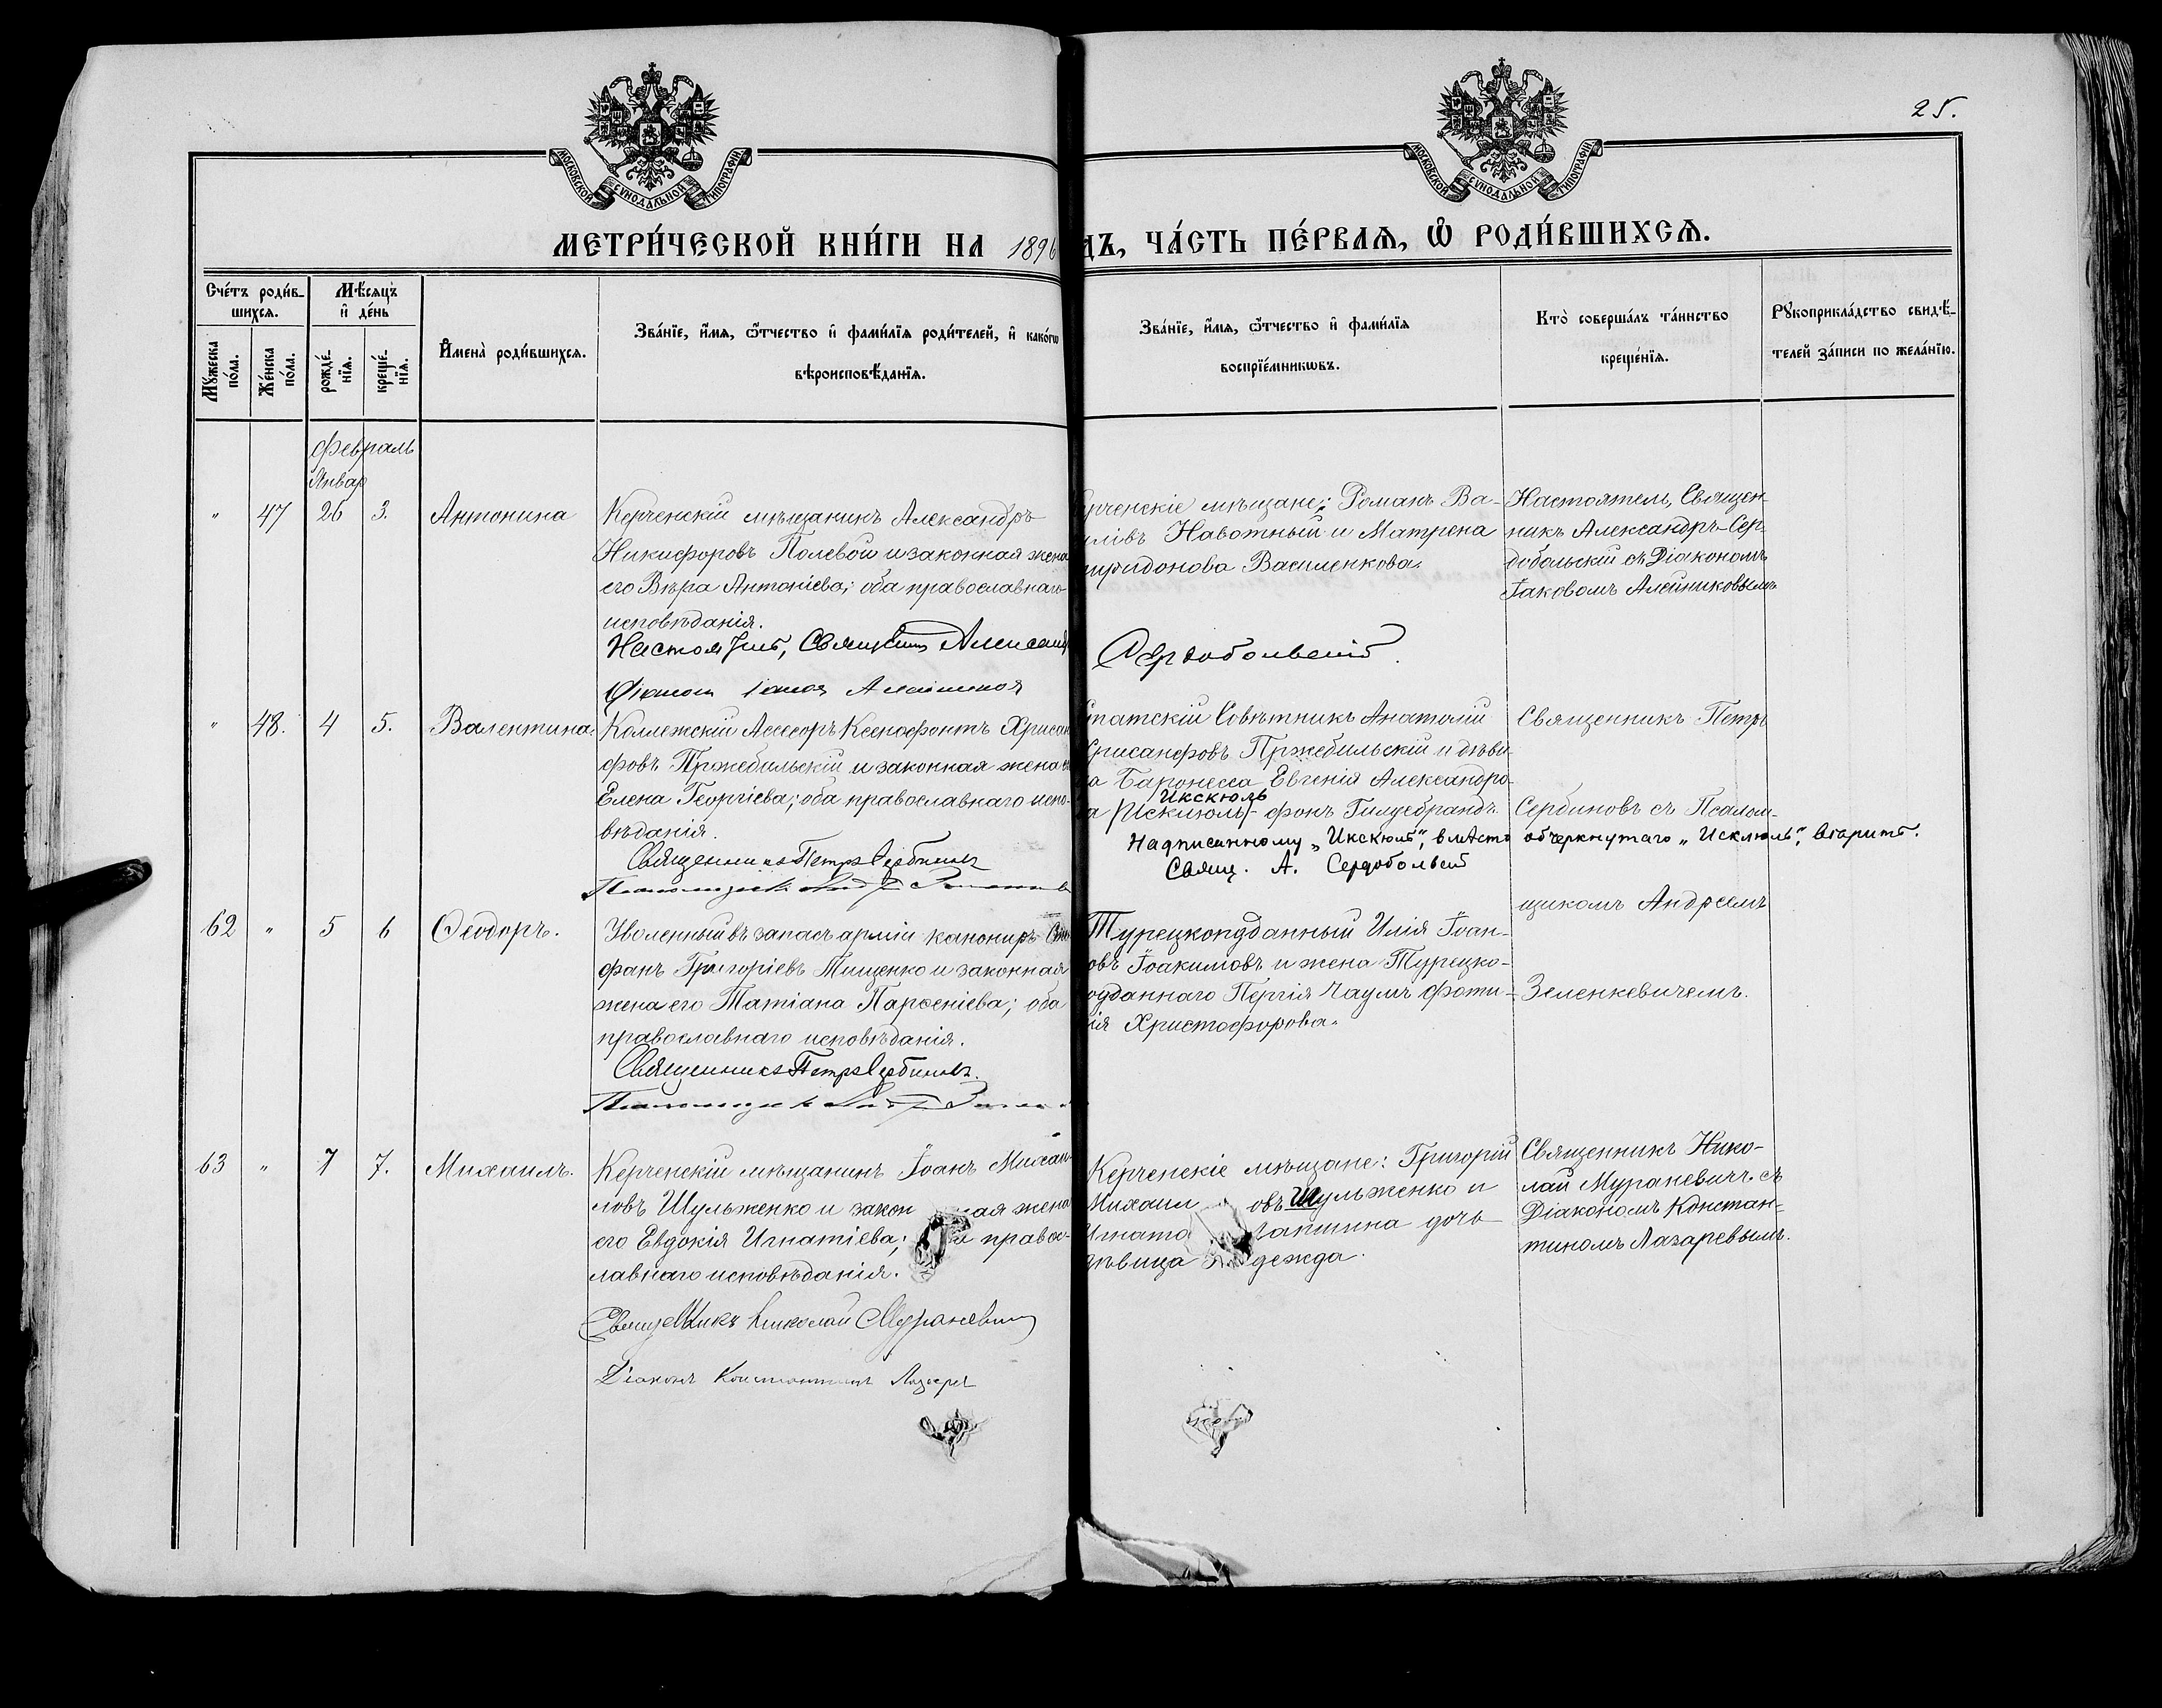 25.
МОСКОВСКОЙ СѴНОДАЛЬНОЙ ТИПОГРАФІИ
МОСКОВСКОЙ СѴНОДАЛЬНОЙ ТИПОГРАФІИ
МЕТРИ́ЧЕСКОЙ КНИ́ГИ НА 1896
ДЪ, ЧА́СТЬ ПЕ́РВАѦ, Ѡ РОДИ́ВШИХСѦ.
Сче́тъ роди́в-
шихсѧ.
Мꙋ́жеска
по́ла.
Же́нска
по́ла.
Мѣ́сѧцъ
и҆ де́нь
рожде́-
нїѧ.
креще́-
нїѧ.
И҆мена̀ роди́вшихсѧ.
Зва́нїе, и҆́мѧ, ѻ҆́тчество и҆ фами́лїѧ роди́телей, и҆ како́гѡ
вѣроисповѣ́данїѧ.
Зва́нїе, и҆́мѧ, ѻ҆́тчество и҆ фами́лїѧ
воспрїе́мникѡвъ.
Кто̀ соверша́лъ та́инство
креще́нїѧ.
Рꙋкоприкла́дство свидѣ́-
телей за́писи по жела́нїю.
Февраль
Январ
" 47 26 3. Антонина
Керченскій мѣщанинъ Александръ
Никифоровъ Полевой и законная жена
его Вѣра Антоніева; оба православнаго
исповѣданія.
Настоятель, Священникъ Александ
Діаконъ Іаковъ Алейников
рченскіе мѣщане: Романъ Ва-
ліевъ Навотный и Матрена
пиридонова Василенкова.
Сердобольскій.
Настоятель, Священ-
никъ Александръ Сер-
добольскій съ Діакономъ
Іаковомъ Алейниковымъ
" 48. 4 5. Валентина.
Коллежскій Ассесоръ Ксенофонтъ Хрисан
фовъ Пржебильскій и законная жена е
Елена Георгіева; оба православнаго испо-
вѣданія.
Священникъ Петръ Сербиновъ
Псаломщикъ
татскій Совѣтникъ Анатолій
Хрисанфовъ Пржебильскій и дѣви-
а Баронесса Евгенія Александро-
Икскюль
а Исклюль - фонъ Гилдебрандъ.
Надписанному „Икскюль", вмѣсто обчеркнутаго „Исклюль", вѣрить.
Свящ. А. Сердобольскій
Священникъ Петръ
Сербиновъ съ Псалом-
щикомъ Андреемъ
Зеленкевичемъ.
62 " 5 6 Ѳеодоръ.
Уволенный въ запасъ арміи канониръ Сте
фанъ Григоріевъ Тищенко и законная
жена его Татіана Парѳеніева; оба
православнаго исповѣданія.
Священникъ Петръ Сербиновъ.
Псаломщикъ
Турецкоподданный Илія Іоан-
овъ Іоакимовъ и жена Турецко-
одданнаго Пергія Чаулъ Фоти-
ія Христофорова.
63 " 7 7. Михаилъ.
Керченскій мѣщанинъ Іоанъ Михаи-
ловъ Шульженко и закон ная жена
его Евдокія Игнатіева; а правос-
лавнаго исповѣданія.
Священникъ Николай Мураневичъ
Діаконъ Константинъ Лазарев
Керченскіе мѣщане: Григорій
Михаил овъ Шульженко и
Игната Лапшина дочь
дѣвица Надежда.
Священникъ Нико-
лай Мураневичъ съ
Діакономъ Констан-
тиномъ Лазаревымъ.